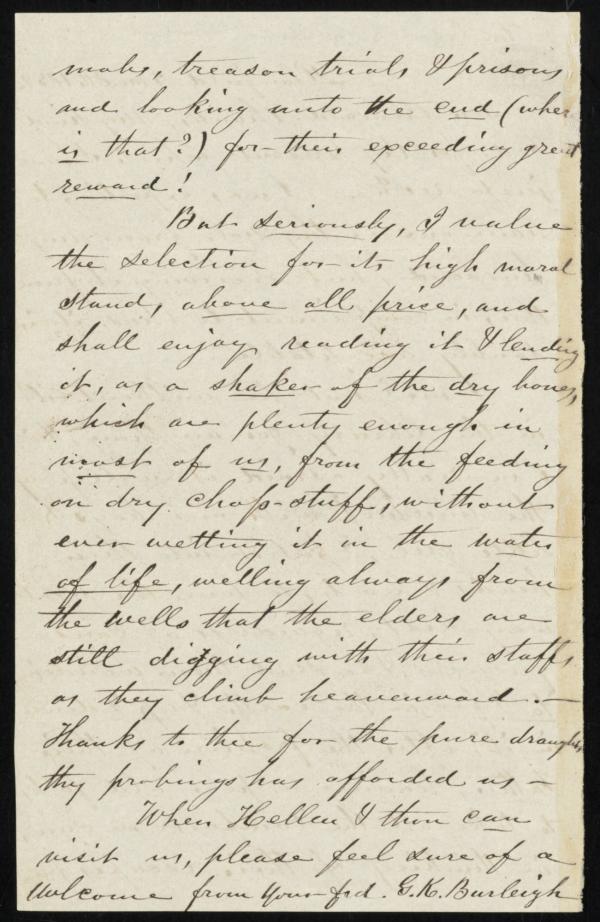 mobs, treason trials & prisons
and looking unto the end (where
is that?) for their exceeding great
reward!
But seriously, I value
the selection for its high moral
stand, above all price, and
shall enjoy reading it & lending
it, as a shaker of the dry bones,
which are plenty enough in
most of us, from the feeding
on dry chop-stuff, without
ever wetting it in the water
of life, welling always from
the wells that the elders are
still digging with their staffs
as they climb heavenward.—
Thanks to thee for the pure draughts
thy probings has afforded us—
When Hellen & thou can
visit us, please feel sure of a
welcome from your frd. G.K. Burleigh